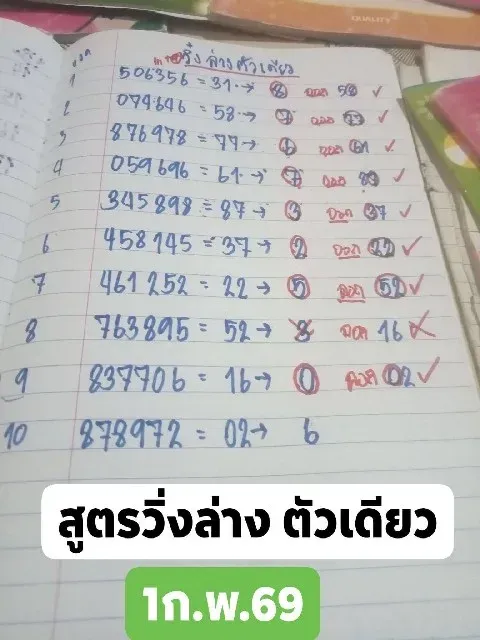 QUALITY
วิ่งล่างตัวเดียว
1 506356 = 31 → 8 ออก 58 ✓
2 074646 = 58 → 7 ออก 77 ✓
3 876978 = 77 → 6 ออก 61 ✓
4 059696 = 61 → 7 ออก 87 ✓
5 345898 = 87 → 3 ออก 37 ✓
6 458145 = 37 → 2 ออก 22 ✓
7 461252 = 22 → 5 ออก 52 ✓
8 763895 = 52 → 8 ออก 16 ✗
9 837706 = 16 → 0 ออก 02 ✓
10 878972 = 02 → 6
สูตรวิ่งล่าง ตัวเดียว
1ก.พ.69